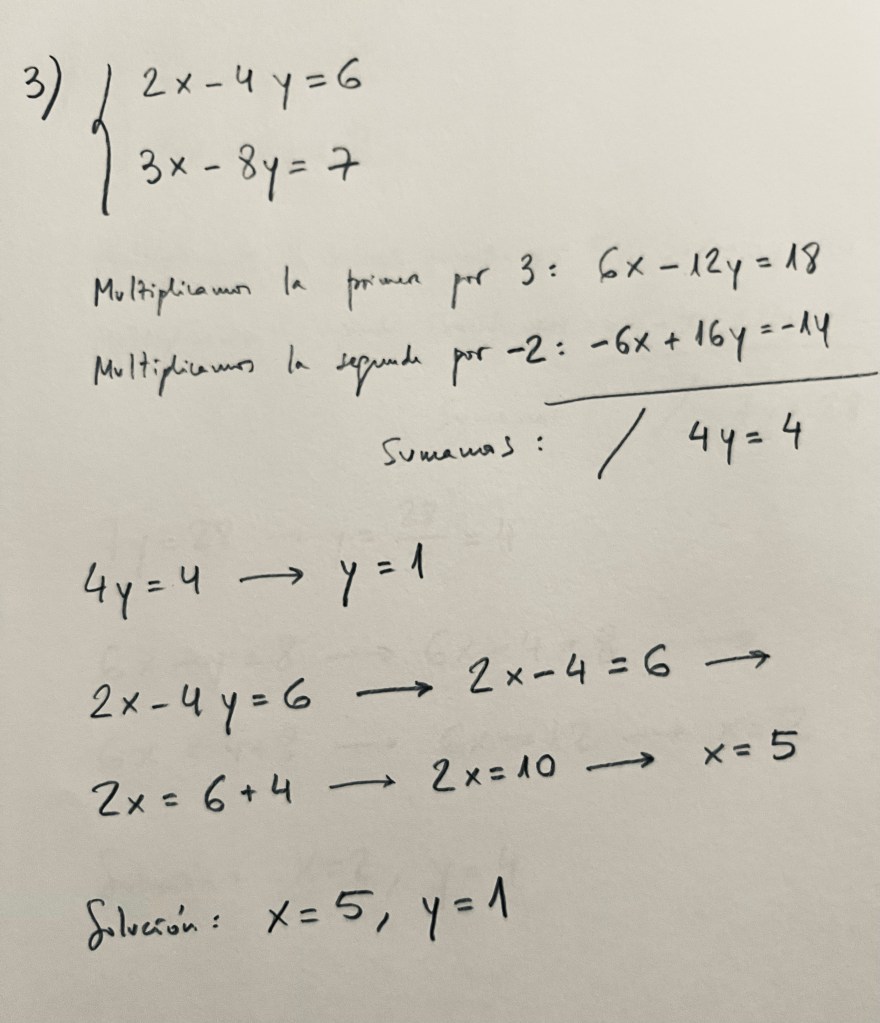 3) { 2x - 4y = 6
3x - 8y = 7
Multiplicamos la primera por 3: 6x - 12y = 18
Multiplicamos la segunda por -2: -6x + 16y = -14
Sumamos: / 4y = 4
4y = 4 → y = 1
2x - 4y = 6 → 2x - 4 = 6 →
2x = 6 + 4 → 2x = 10 → x = 5
Solución: x = 5, y = 1